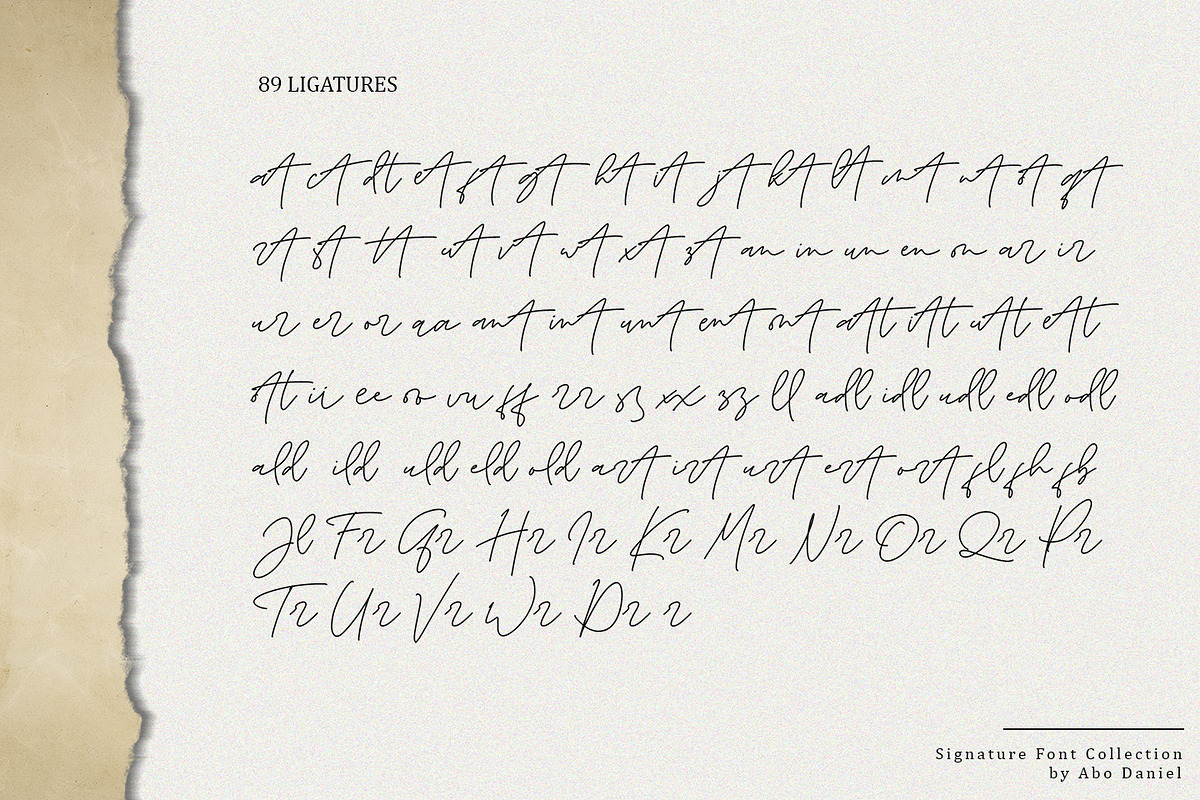 89 LIGATURES
at ct dt et ft gt ht it jt kt lt mt nt ot qt
rt st tt ut vt wt xt zt an in un en on ar ir
ur er or aa ant int unt ent ont att itt utt ett
ott ii ee oo uu ff rr ss xx zz ll adl idl udl edl odl
ald ild uld eld old art irt urt ert ort fl fh fb
Jl Fr Gr Hr Ir Kr Mr Nr Or Qr Pr
Tr Ur Vr Wr Dr r
Signature Font Collection
by Abo Daniel